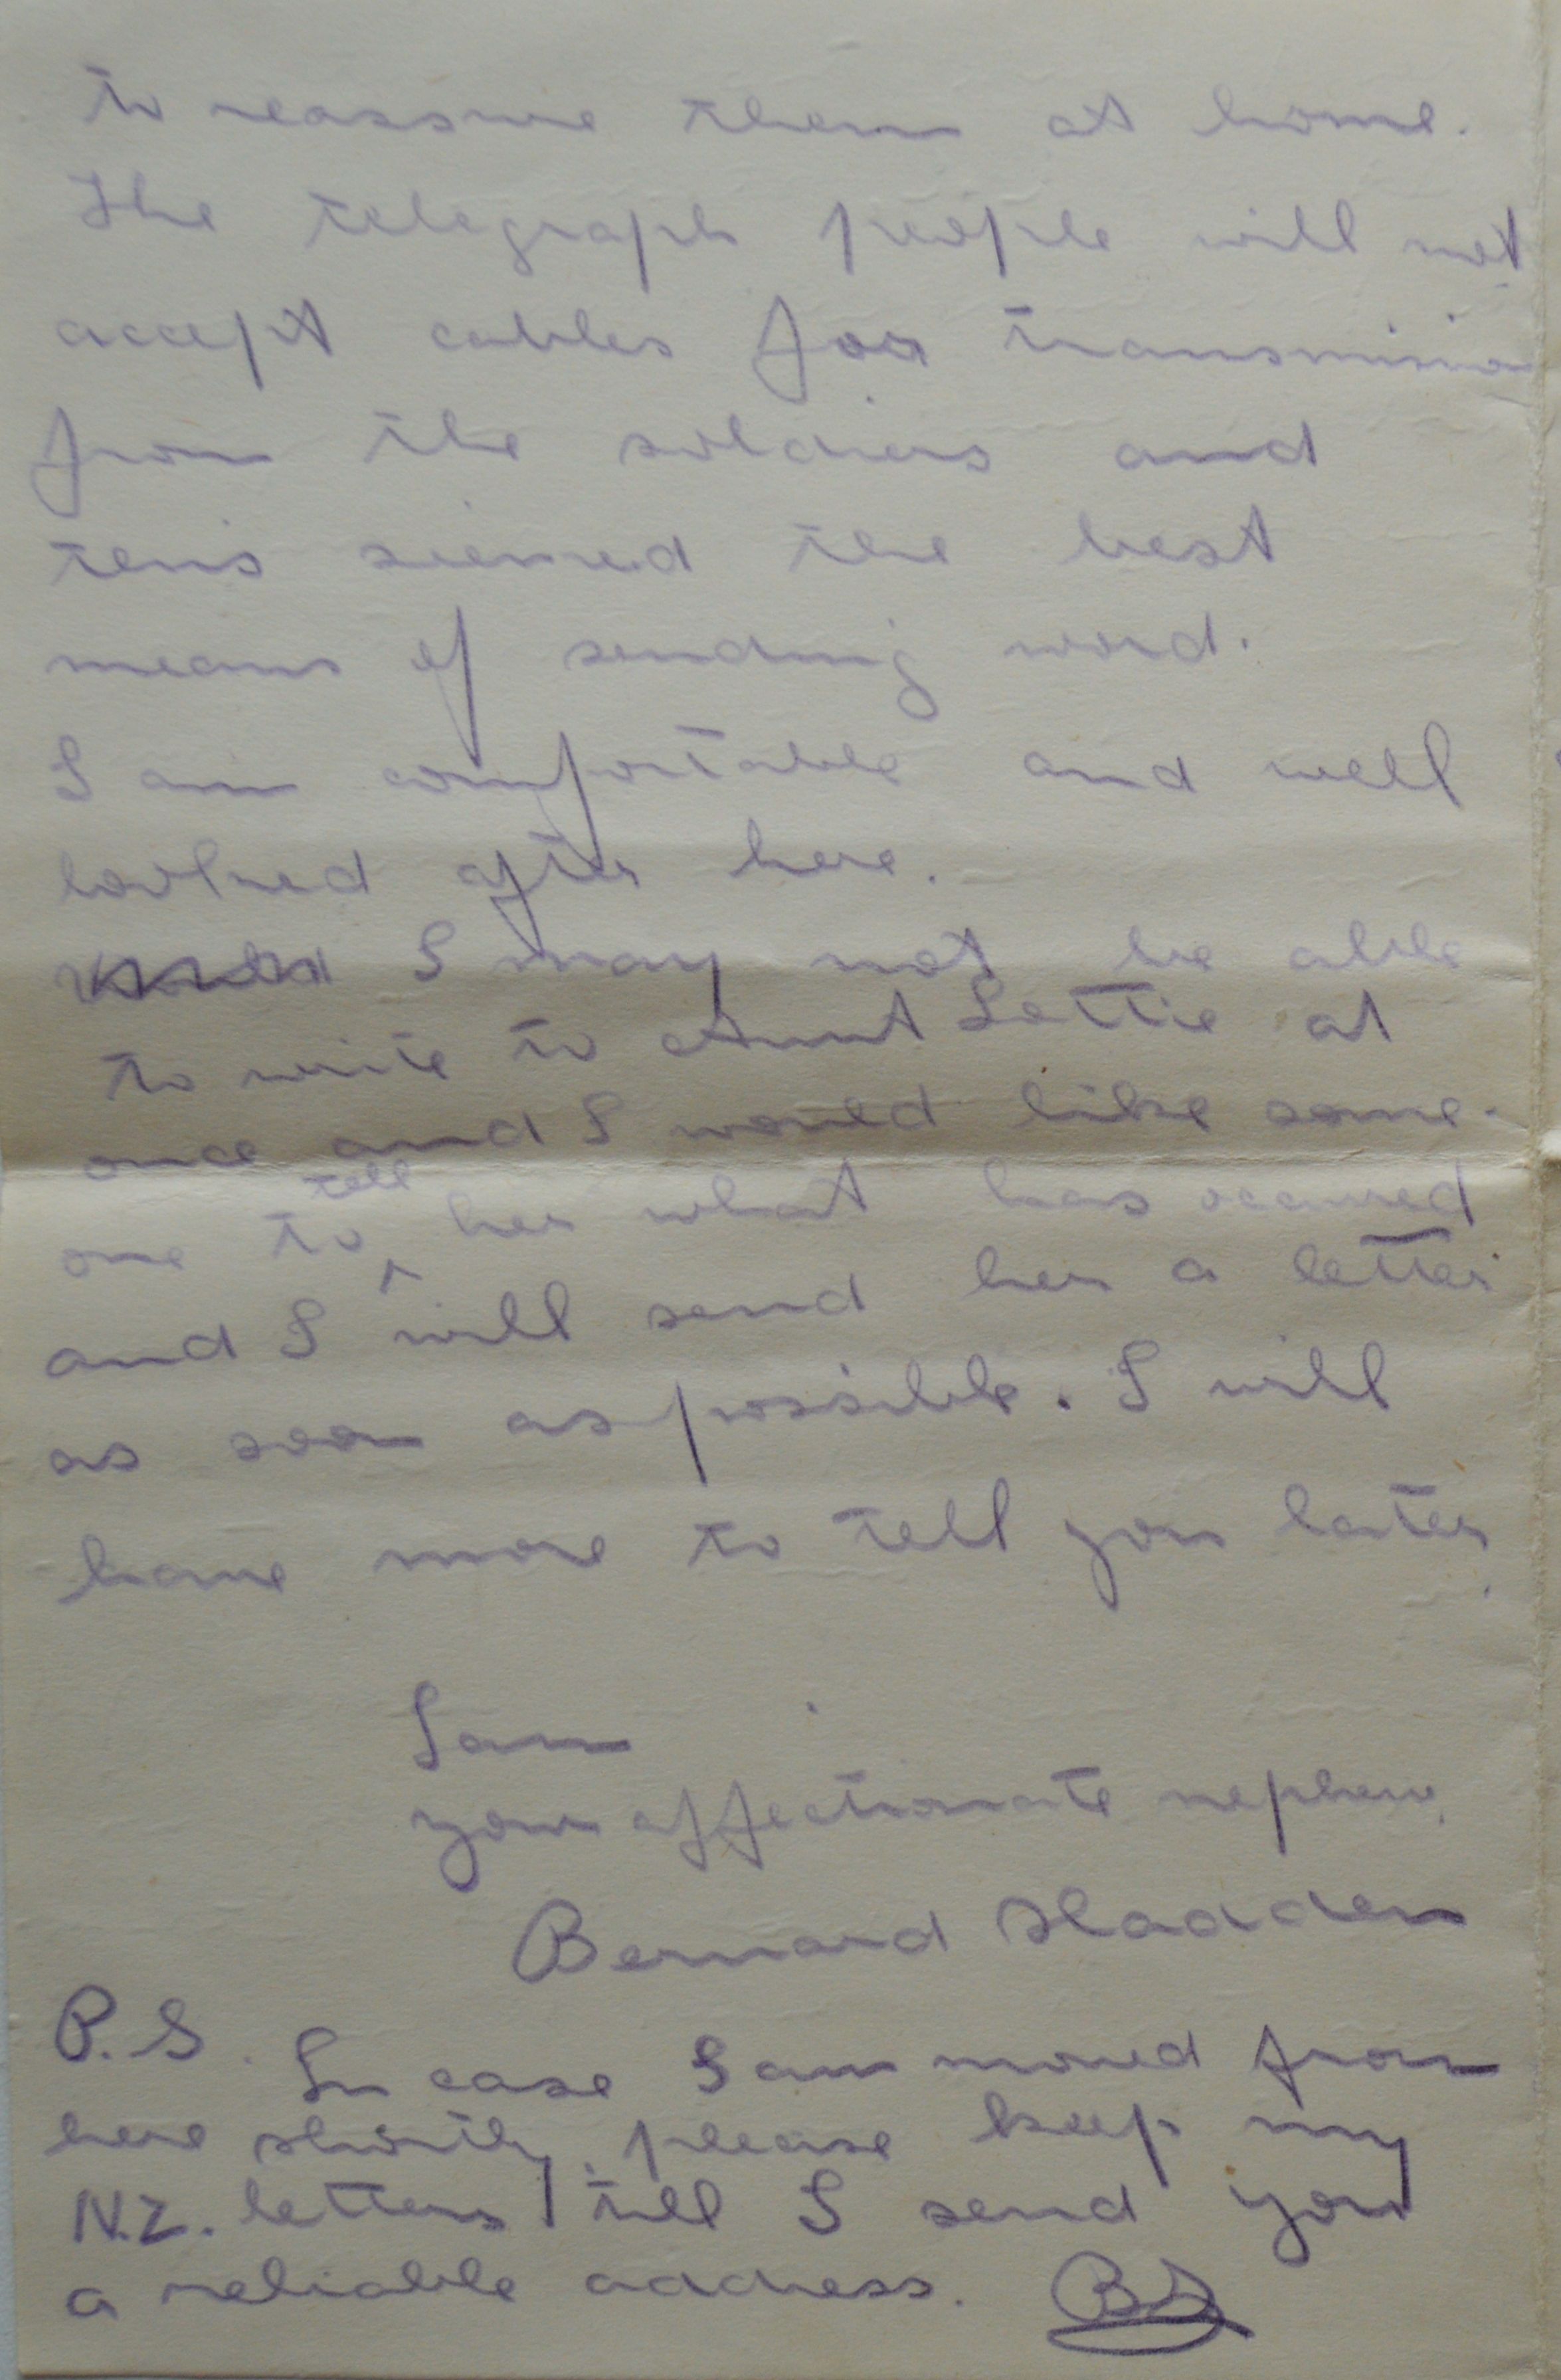 to reassure them at home.
The telegraph people will not
accept cables for transmission
from the soldiers and
this seemed the best
means of sending word.
I am comfortable and well
looked after here.
I may not be able
to write to Aunt Lettie at
once and I would like some-
one to tell her what has occurred
and I will send her a letter
as soon as possible. I will
have more to tell you later.
I am
your affectionate nephew,
Bernard Sladden
P.S. In case I am moved from
here shortly, please keep my
N.Z. letters till I send you
a reliable address. BS